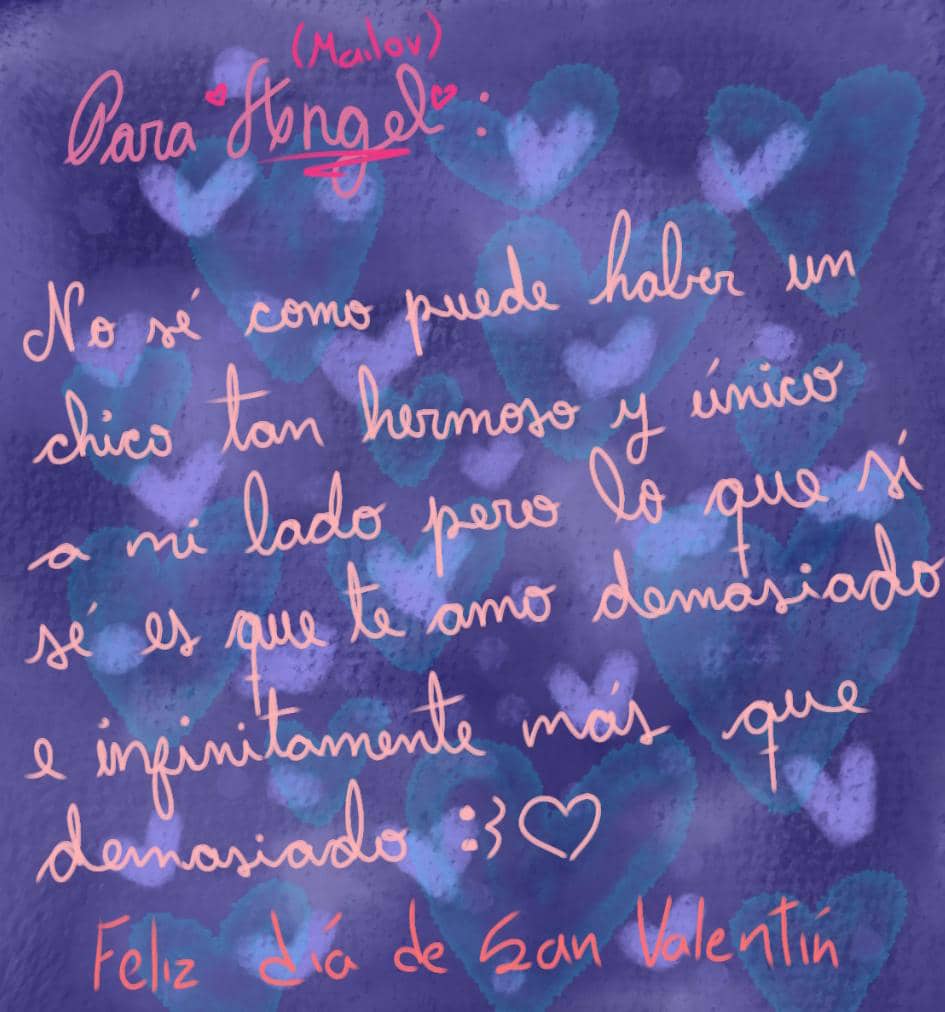 (Mailov)
Para Angel:
No sé como puede haber un
chico tan hermoso y único
a mi lado pero lo que sí
sé es que te amo demasiado
e infinitamente más que
demasiado :3♡
Feliz día de San Valentín